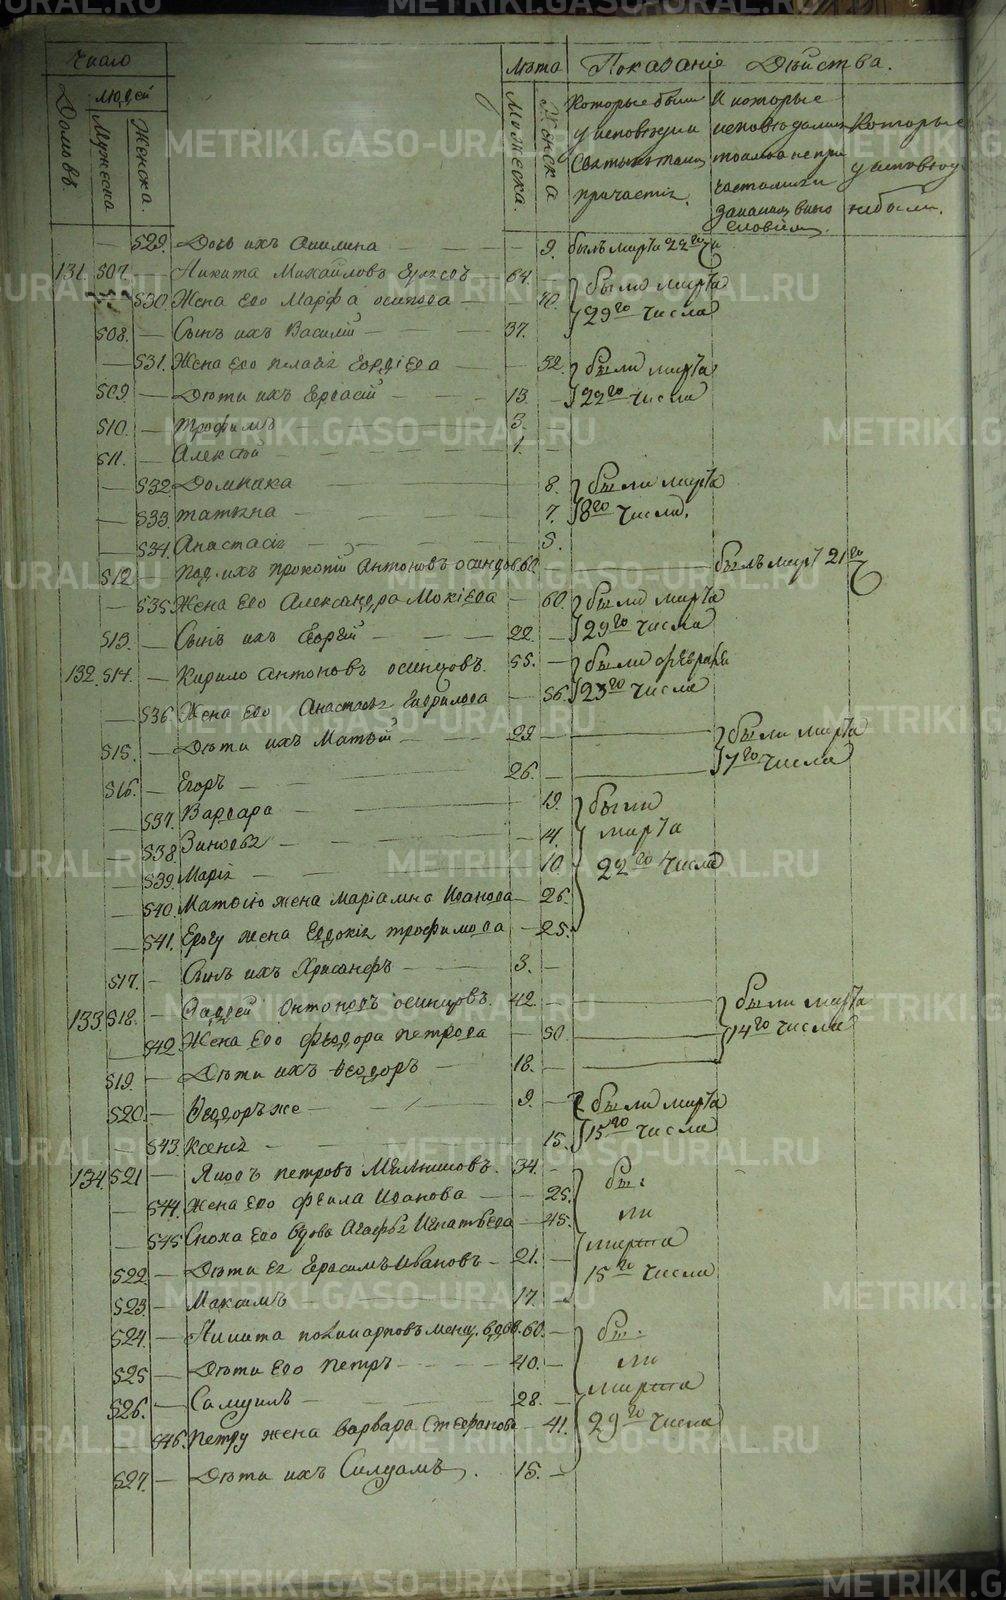 Число
людей
Домовъ.
Мужеска
Женска.
Лѣта
Мужеска.
Женска
Показаніе Дѣйства.
Которые были
у исповѣди и
Святыхъ таинъ
причастіи.
И которые
исповѣдались
токмо а не при
частились
Которые
у исповѣди
не были.
529. Дочь ихъ Акилина 9. былъ марта 22го чи
131. 507. Никита Михайловъ 64.
530. Жена его Марфа осипова 70. были марта
29го числа
508. Сынъ ихъ Василій 37.
531. Жена его пелагія 32. были марта
509. Дѣти ихъ 13. 22го числа
510. трофимъ 3.
511. Алексѣй 1.
532 Домника 8. были марта
533. татіяна 7. 8го числа.
534. Анастасія 5.
512 прокопій Антоновъ осинцов. 60. былъ март 21го
535 Жена его Александра Мокіева 60. были марта
513. Сынъ ихъ Георгій 22. 29го числа
132. 514. Кирило антоновъ осинцовъ. 55. были февраля
536. Жена его Анастасія Гаврилова 56. 23го числа
515. Дѣти ихъ Матѳій 29. были марта
516. Егоръ 26. 7го числа
537. Варвара 19. были
538. Зиновья 14. марта
539. Марія 10. 22го числа
540. Матѳію жена Маріамна Иванова 26.
541. Егору жена Евдокія трофимова 25.
517. Сынъ ихъ Хрисанфъ 3.
133 518. Фаддей Антоновъ осинцовъ. 42. были марта
542 Жена его федора петрова 50. 14го числа
519. Дѣти ихъ Ѳеодоръ 18.
520. Ѳеодоръ же 9. были марта
543. Ксенія 15. 15го числа
134. 521 Яковъ петровъ Мельниковъ. 34. бы:
544. Жена его феила Иванова 25. ли
545 Сноха его вдова Агафья Игнатьева 45. марта
522. Дѣти ея Герасимъ Ивановъ 21. 15го числа
523. Максимъ 17.
524. Никита поликарповъ менщ. вдов. 60. бы:
525 Дѣти его петръ 40. ли
526. Самуилъ 28. марта
546. петру жена варвара Стефанова 41. 29го числа
527. Дѣти ихъ Силуамъ. 15.
METRIKI.GASO-URAL.RU